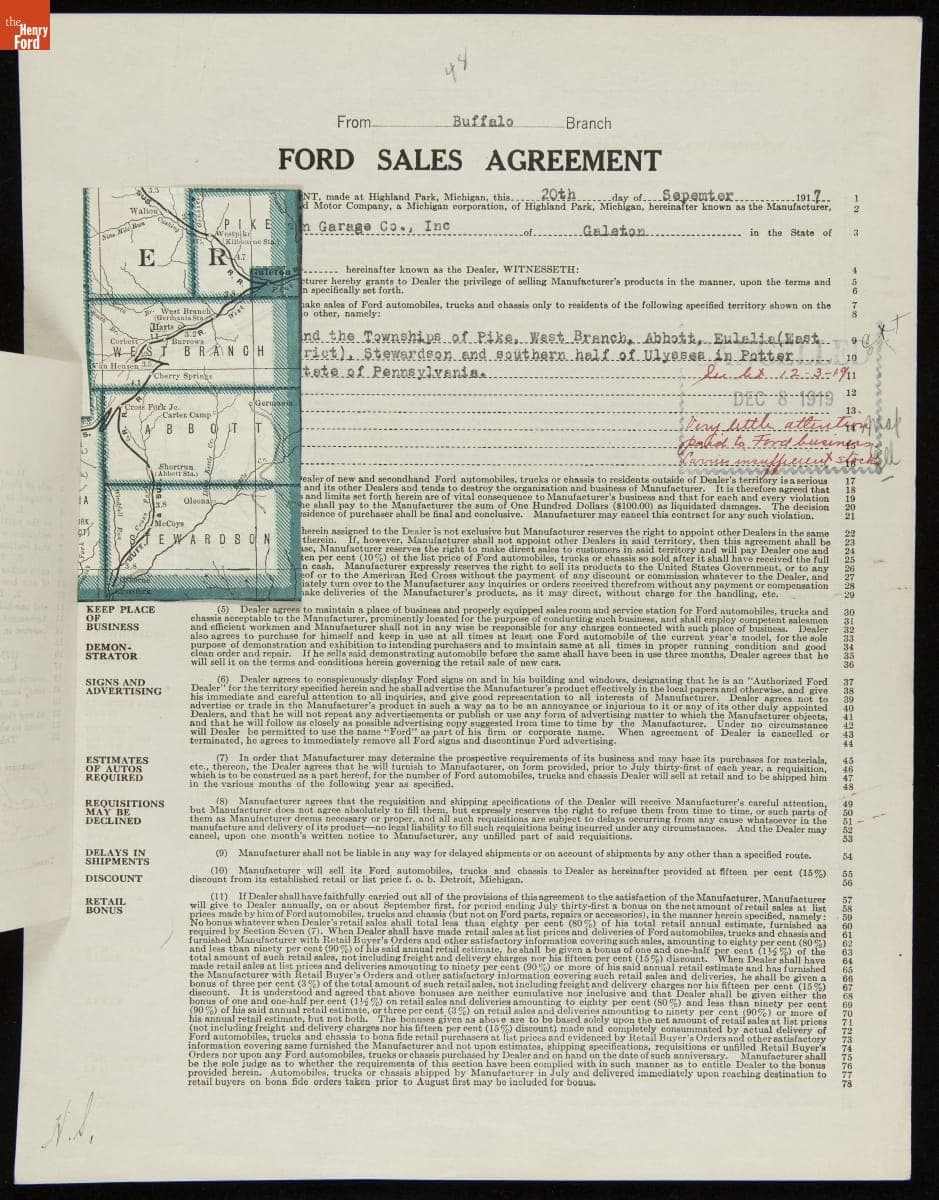 the
Henry
Ford
48
From Buffalo Branch
FORD SALES AGREEMENT
NT, made at Highland Park, Michigan, this 20th day of Sepemter 1917 1
d Motor Company, a Michigan corporation, of Highland Park, Michigan, hereinafter known as the Manufacturer, 2
n Garage Co., Inc of Galeton in the State of 3
hereinafter known as the Dealer, WITNESSETH: 4
cturer hereby grants to Dealer the privilege of selling Manufacturer's products in the manner, upon the terms and 5
n specifically set forth. 6
ake sales of Ford automobiles, trucks and chassis only to residents of the following specified territory shown on the 7
o other, namely: 8
nd the Townships of Pike, West Branch, Abbott, Eulalia(East 9
rict), Stewardson and southern half of Ulysses in Potter 10
tate of Pennsylvania. 11
12-3-19
12
DEC 8 1919
13
Very little attention
paid to Ford business
Carries insufficient stock
PIKE
E R
Walton
Nine Mile Run
Cushing
Westpike
(Kilbourne Sta.)
4.7
Galeton
West Branch
(Germania Sta.)
Harts
3.2
Corbett
Burrows
WEST BRANCH
Van Heusen
3.5
Cherry Springs
Cross Fork Jc.
Germania
Carter Camp
ABBOTT
Shortrun
(Abbott Sta.)
Oleona
3.8
McCoys
STEWARDSON
ealer of new and secondhand Ford automobiles, trucks or chassis to residents outside of Dealer's territory is a serious 17
and its other Dealers and tends to destroy the organization and business of Manufacturer. It is therefore agreed that 18
and limits set forth herein are of vital consequence to Manufacturer's business and that for each and every violation 19
he shall pay to the Manufacturer the sum of One Hundred Dollars ($100.00) as liquidated damages. The decision 20
sidence of purchaser shall be final and conclusive. Manufacturer may cancel this contract for any such violation. 21
herein assigned to the Dealer is not exclusive but Manufacturer reserves the right to appoint other Dealers in the same 22
therein. If, however, Manufacturer shall not appoint other Dealers in said territory, then this agreement shall be 23
se, Manufacturer reserves the right to make direct sales to customers in said territory and will pay Dealer one and 24
ten per cent (10%) of the list price of Ford automobiles, trucks or chassis so sold after it shall have received the full 25
n cash. Manufacturer expressly reserves the right to sell its products to the United States Government, or to any 26
eof or to the American Red Cross without the payment of any discount or commission whatever to the Dealer, and 27
iately turn over to the Manufacturer any inquiries or orders received therefrom without any payment or compensation 28
ake deliveries of the Manufacturer's products, as it may direct, without charge for the handling, etc. 29
KEEP PLACE
OF
BUSINESS
DEMON-
STRATOR
(5) Dealer agrees to maintain a place of business and properly equipped sales room and service station for Ford automobiles, trucks and 30
chassis acceptable to the Manufacturer, prominently located for the purpose of conducting such business, and shall employ competent salesmen 31
and efficient workmen and Manufacturer shall not in any wise be responsible for any charges connected with such place of business. Dealer 32
also agrees to purchase for himself and keep in use at all times at least one Ford automobile of the current year's model, for the sole 33
purpose of demonstration and exhibition to intending purchasers and to maintain same at all times in proper running condition and good 34
clean order and repair. If he sells said demonstrating automobile before the same shall have been in use three months, Dealer agrees that he 35
will sell it on the terms and conditions herein governing the retail sale of new cars. 36
SIGNS AND
ADVERTISING
(6) Dealer agrees to conspicuously display Ford signs on and in his building and windows, designating that he is an "Authorized Ford 37
Dealer" for the territory specified herein and he shall advertise the Manufacturer's product effectively in the local papers and otherwise, and give 38
his immediate and careful attention to all inquiries, and give good representation to all interests of Manufacturer. Dealer agrees not to 39
advertise or trade in the Manufacturer's product in such a way as to be an annoyance or injurious to it or any of its other duly appointed 40
Dealers, and that he will not repeat any advertisements or publish or use any form of advertising matter to which the Manufacturer objects, 41
and that he will follow as closely as possible advertising copy suggested from time to time by the Manufacturer. Under no circumstance 42
will Dealer be permitted to use the name "Ford" as part of his firm or corporate name. When agreement of Dealer is cancelled or 43
terminated, he agrees to immediately remove all Ford signs and discontinue Ford advertising. 44
ESTIMATES
OF AUTOS
REQUIRED
(7) In order that Manufacturer may determine the prospective requirements of its business and may base its purchases for materials, 45
etc., thereon, the Dealer agrees that he will furnish to Manufacturer, on form provided, prior to July thirty-first of each year, a requisition, 46
which is to be construed as a part hereof, for the number of Ford automobiles, trucks and chassis Dealer will sell at retail and to be shipped him 47
in the various months of the following year as specified. 48
REQUISITIONS
MAY BE
DECLINED
(8) Manufacturer agrees that the requisition and shipping specifications of the Dealer will receive Manufacturer's careful attention, 49
but Manufacturer does not agree absolutely to fill them, but expressly reserves the right to refuse them from time to time, or such parts of 50
them as Manufacturer deems necessary or proper, and all such requisitions are subject to delays occurring from any cause whatsoever in the 51
manufacture and delivery of its product—no legal liability to fill such requisitions being incurred under any circumstances. And the Dealer may 52
cancel, upon one month's written notice to Manufacturer, any unfilled part of said requisitions. 53
DELAYS IN
SHIPMENTS
(9) Manufacturer shall not be liable in any way for delayed shipments or on account of shipments by any other than a specified route. 54
DISCOUNT
(10) Manufacturer will sell its Ford automobiles, trucks and chassis to Dealer as hereinafter provided at fifteen per cent (15%) 55
discount from its established retail or list price f. o. b. Detroit, Michigan. 56
RETAIL
BONUS
(11) If Dealer shall have faithfully carried out all of the provisions of this agreement to the satisfaction of the Manufacturer, Manufacturer 57
will give to Dealer annually, on or about September first, for period ending July thirty-first a bonus on the net amount of retail sales at list 58
prices made by him of Ford automobiles, trucks and chassis (but not on Ford parts, repairs or accessories), in the manner herein specified, namely: 59
No bonus whatever when Dealer's retail sales shall total less than eighty per cent (80%) of his total retail annual estimate, furnished as 60
required by Section Seven (7). When Dealer shall have made retail sales at list prices and deliveries of Ford automobiles, trucks and chassis and 61
furnished Manufacturer with Retail Buyer's Orders and other satisfactory information covering such sales, amounting to eighty per cent (80%) 62
and less than ninety per cent (90%) of his said annual retail estimate, he shall be given a bonus of one and one-half per cent (1½%) of the 63
total amount of such retail sales, not including freight and delivery charges nor his fifteen per cent (15%) discount. When Dealer shall have 64
made retail sales at list prices and deliveries amounting to ninety per cent (90%) or more of his said annual retail estimate and has furnished 65
the Manufacturer with Retail Buyer's Orders and other satisfactory information covering such retail sales and deliveries, he shall be given a 66
bonus of three per cent (3%) of the total amount of such retail sales, not including freight and delivery charges nor his fifteen per cent (15%) 67
discount. It is understood and agreed that above bonuses are neither cumulative nor inclusive and that Dealer shall be given either the 68
bonus of one and one-half per cent (1½%) on retail sales and deliveries amounting to eighty per cent (80%) and less than ninety per cent 69
(90%) of his said annual estimate, or three per cent (3%) on retail sales and deliveries amounting to ninety per cent (90%) or more of 70
his annual retail estimate, but not both. The bonuses given as above are to be based solely upon the net amount of retail sales at list prices 71
(not including freight und delivery charges nor his fifteen per cent (15%) discount) made and completely consummated by actual delivery of 72
Ford automobiles, trucks and chassis to bona fide retail purchasers at list prices and evidenced by Retail Buyer's Orders and other satisfactory 73
information covering same furnished the Manufacturer and not upon estimates, shipping specifications, requisitions or unfilled Retail Buyer's 74
Orders nor upon any Ford automobiles, trucks or chassis purchased by Dealer and on hand on the date of such anniversary. Manufacturer shall 75
be the sole judge as to whether the requirements of this section have been complied with in such manner as to entitle Dealer to the bonus 76
provided herein. Automobiles, trucks or chassis shipped by Manufacturer in July and delivered immediately upon reaching destination to 77
retail buyers on bona fide orders taken prior to August first may be included for bonus. 78